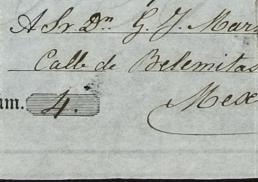 A Sr. Dn. G. J. Mar
Calle de Belemitas
um. 4.
Mex